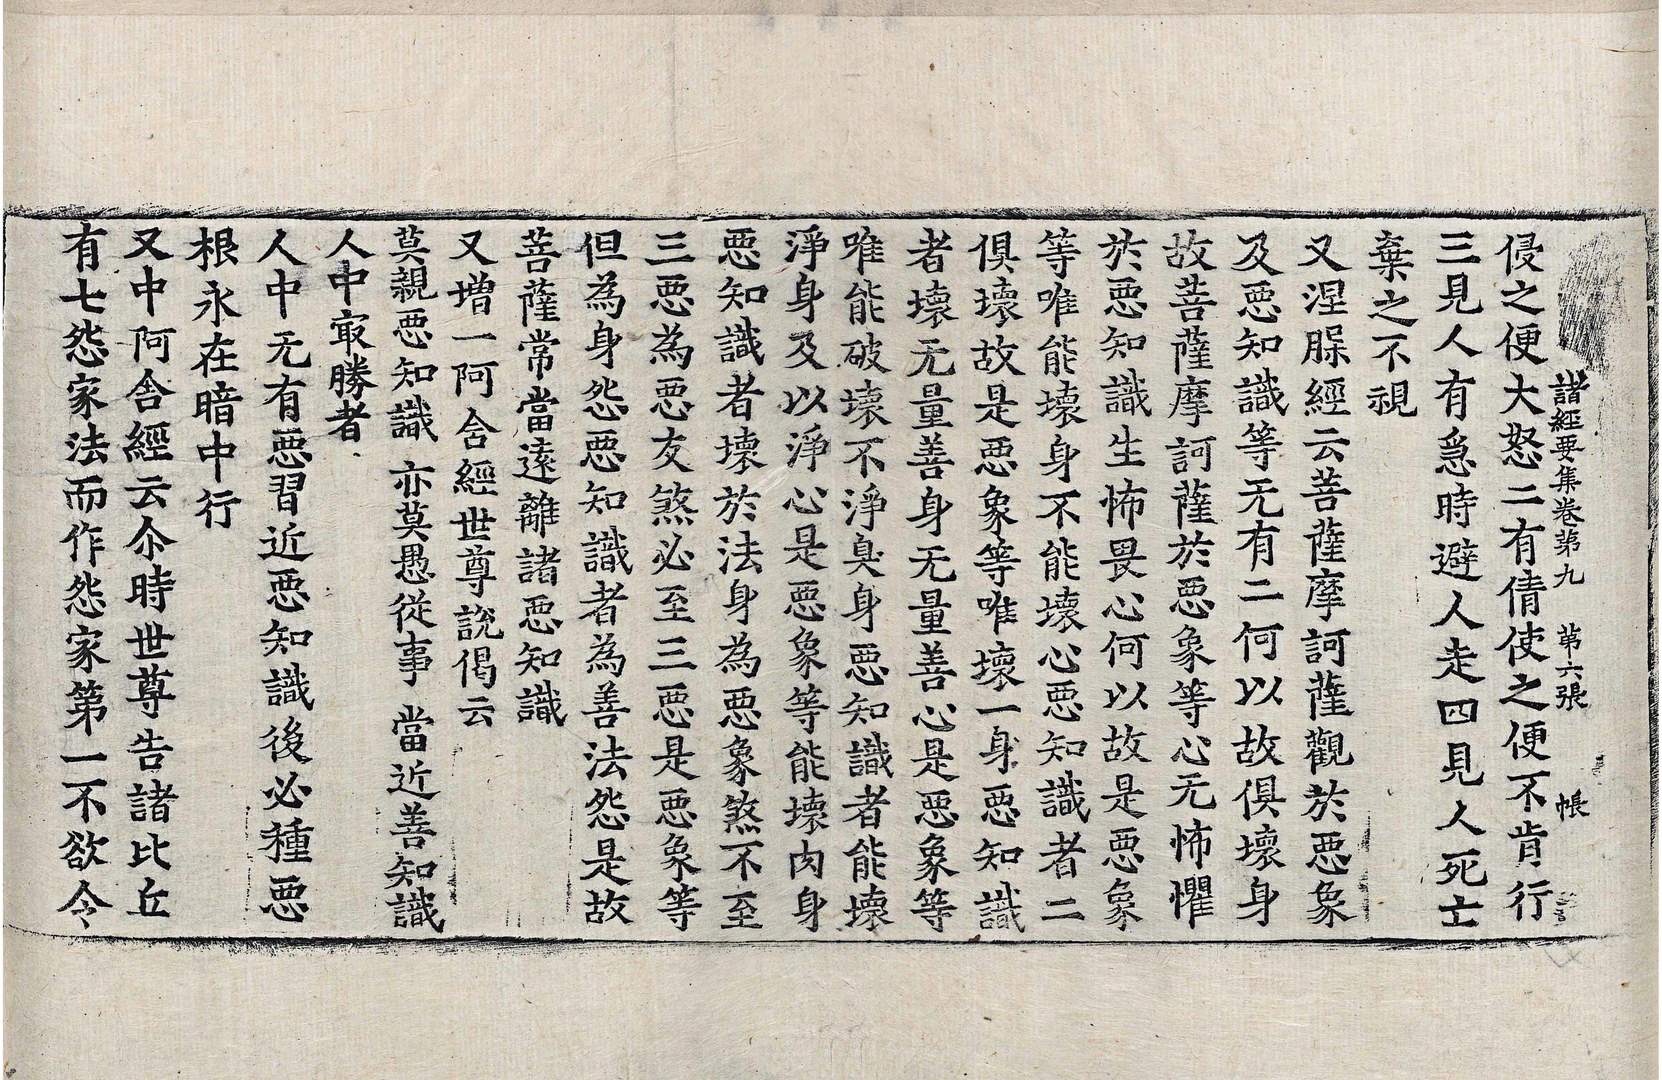 諸經要集卷第九　第六張　帳
侵之便大怒二有倩使之便不肯行
三見人有急時避人走四見人死亡
棄之不視
又涅槃經云菩薩摩訶薩觀於惡象
及惡知識等无有二何以故俱壞身
故菩薩摩訶薩於惡象等心无怖懼
於惡知識生怖畏心何以故是惡象
等唯能壞身不能壞心惡知識者二
俱壞故是惡象等唯壞一身惡知識
者壞无量善身无量善心是惡象等
唯能破壞不淨臭身惡知識者能壞
淨身及以淨心是惡象等能壞肉身
惡知識者壞於法身為惡象煞不至
三惡為惡友煞必至三惡是惡象等
但為身怨惡知識者為善法怨是故
菩薩常當遠離諸惡知識
又增一阿含經世尊說偈云
莫親惡知識　亦莫愚從事　當近善知識
人中㝡勝者
人中无有惡習近惡知識後必種惡
根永在暗中行
又中阿含經云尒時世尊告諸比丘
有七怨家法而作怨家第一不欲令